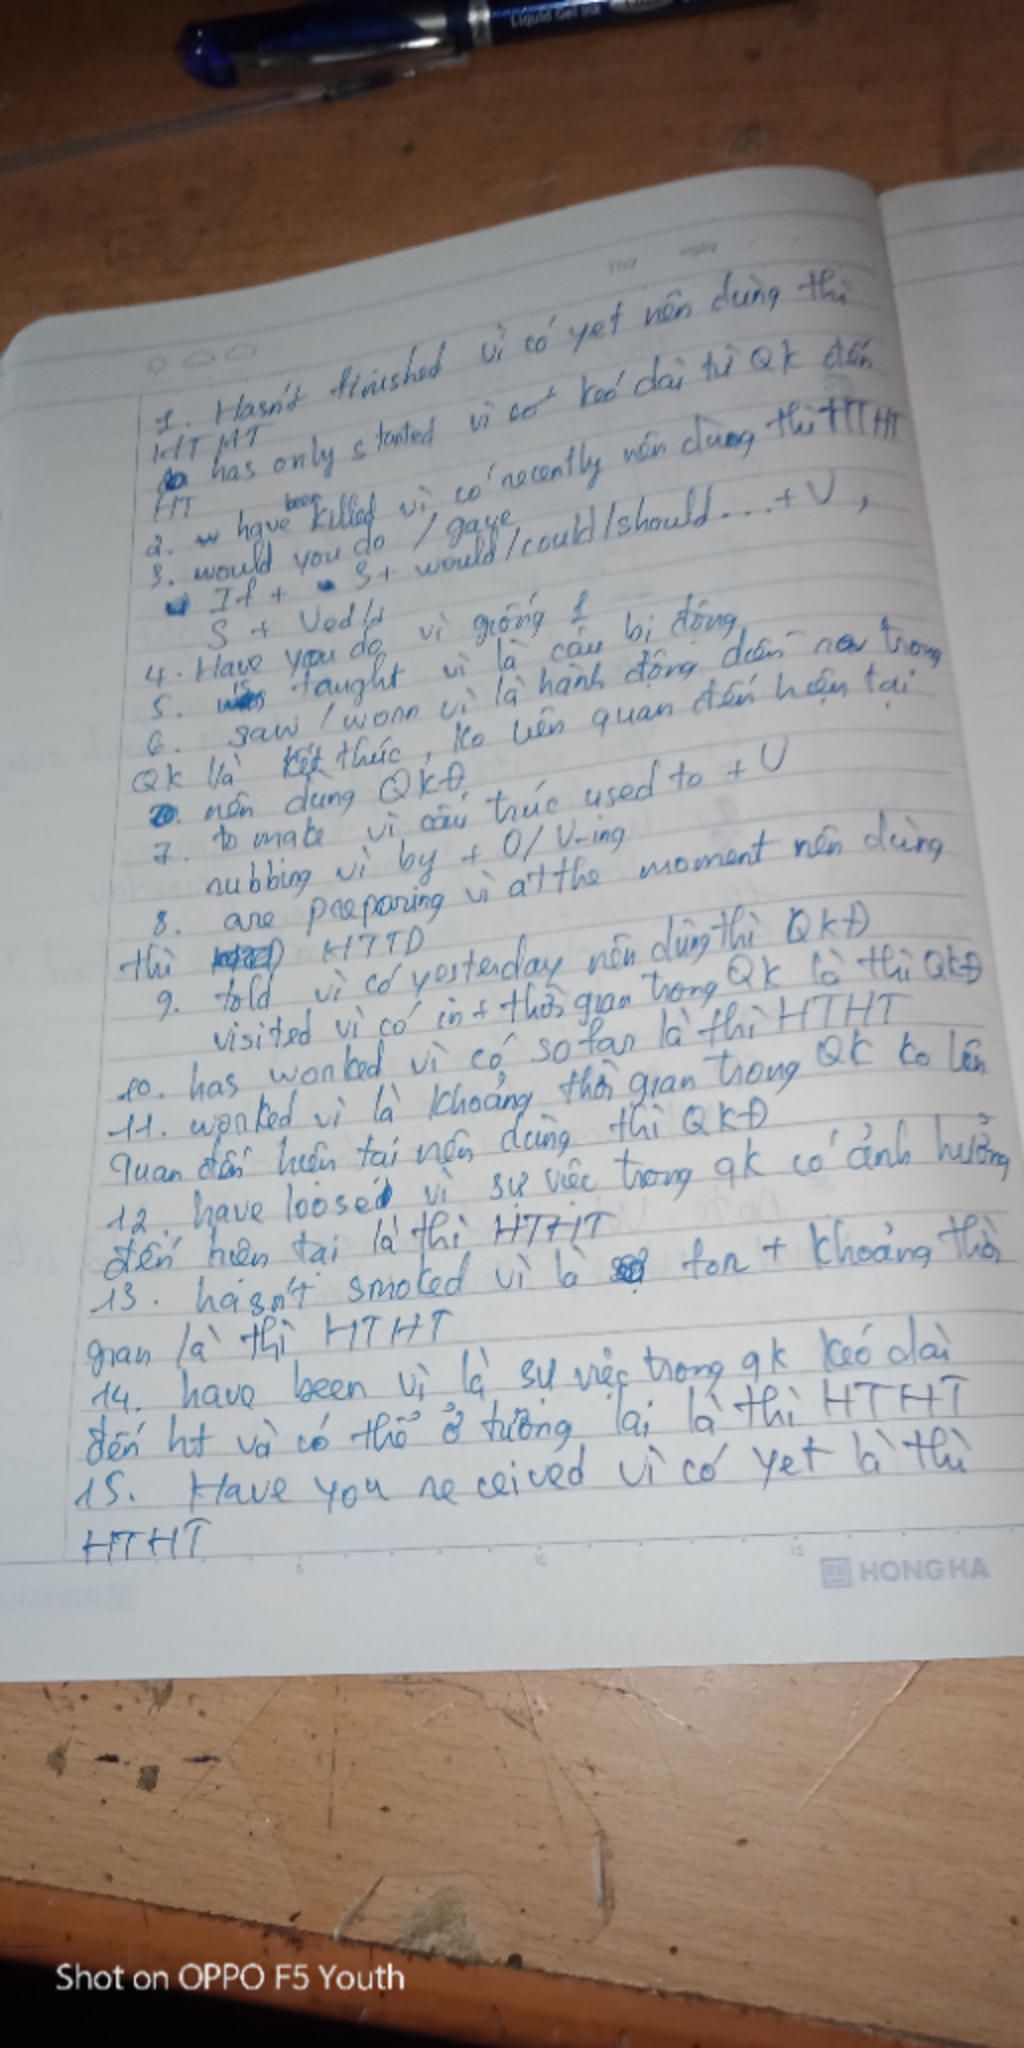 Liquid Gel Ink
Thứ ngày
1. Hasn't finished vì có yet nên dùng thì
HTHT
has only started vì có kéo dài từ QK đến
HT
2. have been killed vì có recently nên dùng thì HTHT
3. would you do / gave
If + S + would/could/should... + V,
S + Ved/
4. Have you do vì giống 1
5. taught vì là câu bị động
6. saw / worn vì là hành động diễn ra trong
QK và kết thúc, ko liên quan đến hiện tại
nên dùng QKĐ
7. to make vì cấu trúc used to + V
rubbing vì by + O/V-ing
8. are preparing vì at the moment nên dùng
thì HTTD
9. told vì có yesterday nên dùng thì QKĐ
visited vì có in + thời gian trong QK là thì QKĐ
10. has worked vì có so far là thì HTHT
11. worked vì là khoảng thời gian trong QK ko liên
quan đến hiện tại nên dùng thì QKĐ
12. have loosed vì sự việc trong qk có ảnh hưởng
đến hiện tại là thì HTHT
13. hasn't smoked vì là for + khoảng thời
gian là thì HTHT
14. have been vì là sự việc trong qk kéo dài
đến ht và có thể ở tương lai là thì HTHT
15. Have you received vì có yet là thì
HTHT
5 10 15
HONG HA
Shot on OPPO F5 Youth